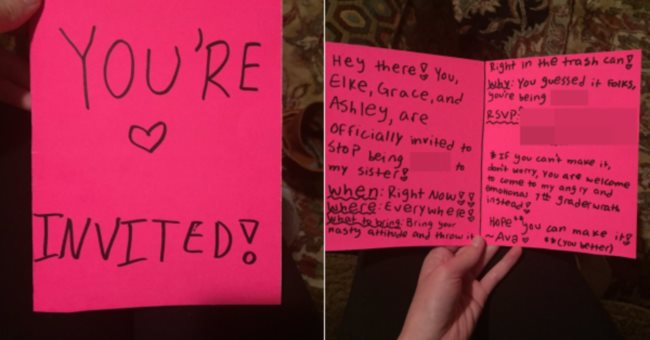 YOU'RE
INVITED!
Hey there! You,
Elke, Grace, and
Ashley, are
Officially invited to
Stop being to
my sister!
when: Right Now!!
where: Everywhere!
what to bring: Bring your
nasty attitude and throw it
Right in the trash can!
Why: You guessed it folks,
you're being
RSVP:
*If you can't make it,
don't worry, you are welcome
to come to my angry and
emotional 7th grader wrath
instead!
Hope** you can make it!
~Ava
**(you better)